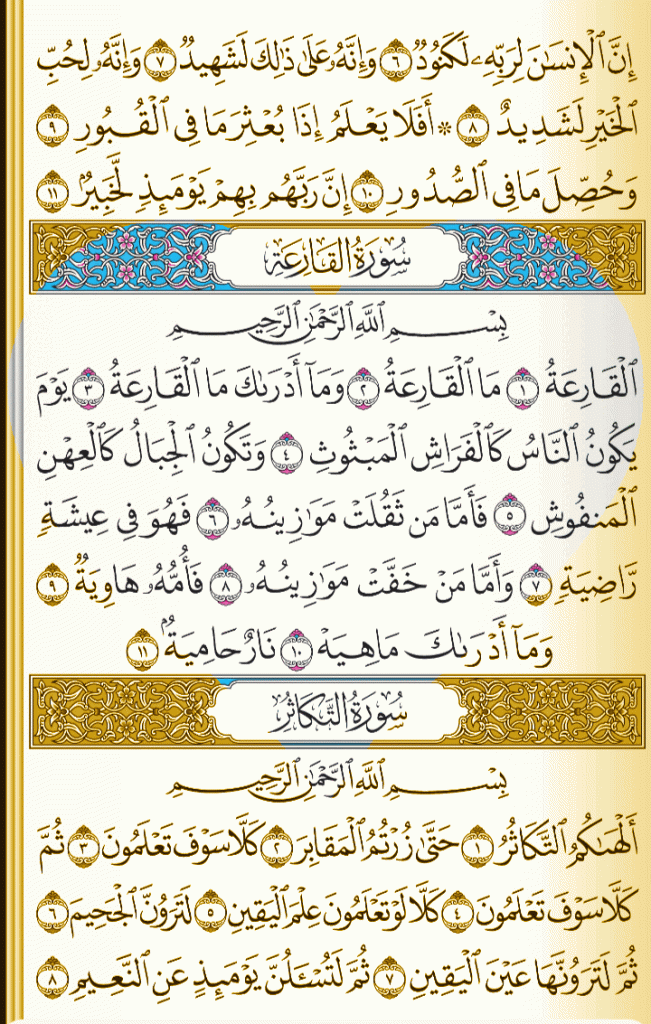 إِنَّ ٱلْإِنسَٰنَ لِرَبِّهِۦ لَكَنُودٌ ٦ وَإِنَّهُۥ عَلَىٰ ذَٰلِكَ لَشَهِيدٌ ٧ وَإِنَّهُۥ لِحُبِّ
ٱلْخَيْرِ لَشَدِيدٌ ٨ ۞ أَفَلَا يَعْلَمُ إِذَا بُعْثِرَ مَا فِى ٱلْقُبُورِ ٩
وَحُصِّلَ مَا فِى ٱلصُّدُورِ ١٠ إِنَّ رَبَّهُم بِهِمْ يَوْمَئِذٍ لَّخَبِيرٌۢ ١١
سُورَةُ القَارِعَةِ
بِسْمِ ٱللَّهِ ٱلرَّحْمَٰنِ ٱلرَّحِيمِ
ٱلْقَارِعَةُ ١ مَا ٱلْقَارِعَةُ ٢ وَمَآ أَدْرَىٰكَ مَا ٱلْقَارِعَةُ ٣ يَوْمَ
يَكُونُ ٱلنَّاسُ كَٱلْفَرَاشِ ٱلْمَبْثُوثِ ٤ وَتَكُونُ ٱلْجِبَالُ كَٱلْعِهْنِ
ٱلْمَنفُوشِ ٥ فَأَمَّا مَن ثَقُلَتْ مَوَٰزِينُهُۥ ٦ فَهُوَ فِى عِيشَةٍ
رَّاضِيَةٍ ٧ وَأَمَّا مَنْ خَفَّتْ مَوَٰزِينُهُۥ ٨ فَأُمُّهُۥ هَاوِيَةٌ ٩
وَمَآ أَدْرَىٰكَ مَا هِيَهْ ١٠ نَارٌ حَامِيَةٌۢ ١١
سُورَةُ التَّكَاثُرِ
بِسْمِ ٱللَّهِ ٱلرَّحْمَٰنِ ٱلرَّحِيمِ
أَلْهَىٰكُمُ ٱلتَّكَاثُرُ ١ حَتَّىٰ زُرْتُمُ ٱلْمَقَابِرَ ٢ كَلَّا سَوْفَ تَعْلَمُونَ ٣ ثُمَّ
كَلَّا سَوْفَ تَعْلَمُونَ ٤ كَلَّا لَوْ تَعْلَمُونَ عِلْمَ ٱلْيَقِينِ ٥ لَتَرَوُنَّ ٱلْجَحِيمَ ٦
ثُمَّ لَتَرَوُنَّهَا عَيْنَ ٱلْيَقِينِ ٧ ثُمَّ لَتُسْـَٔلُنَّ يَوْمَئِذٍ عَنِ ٱلنَّعِيمِ ٨